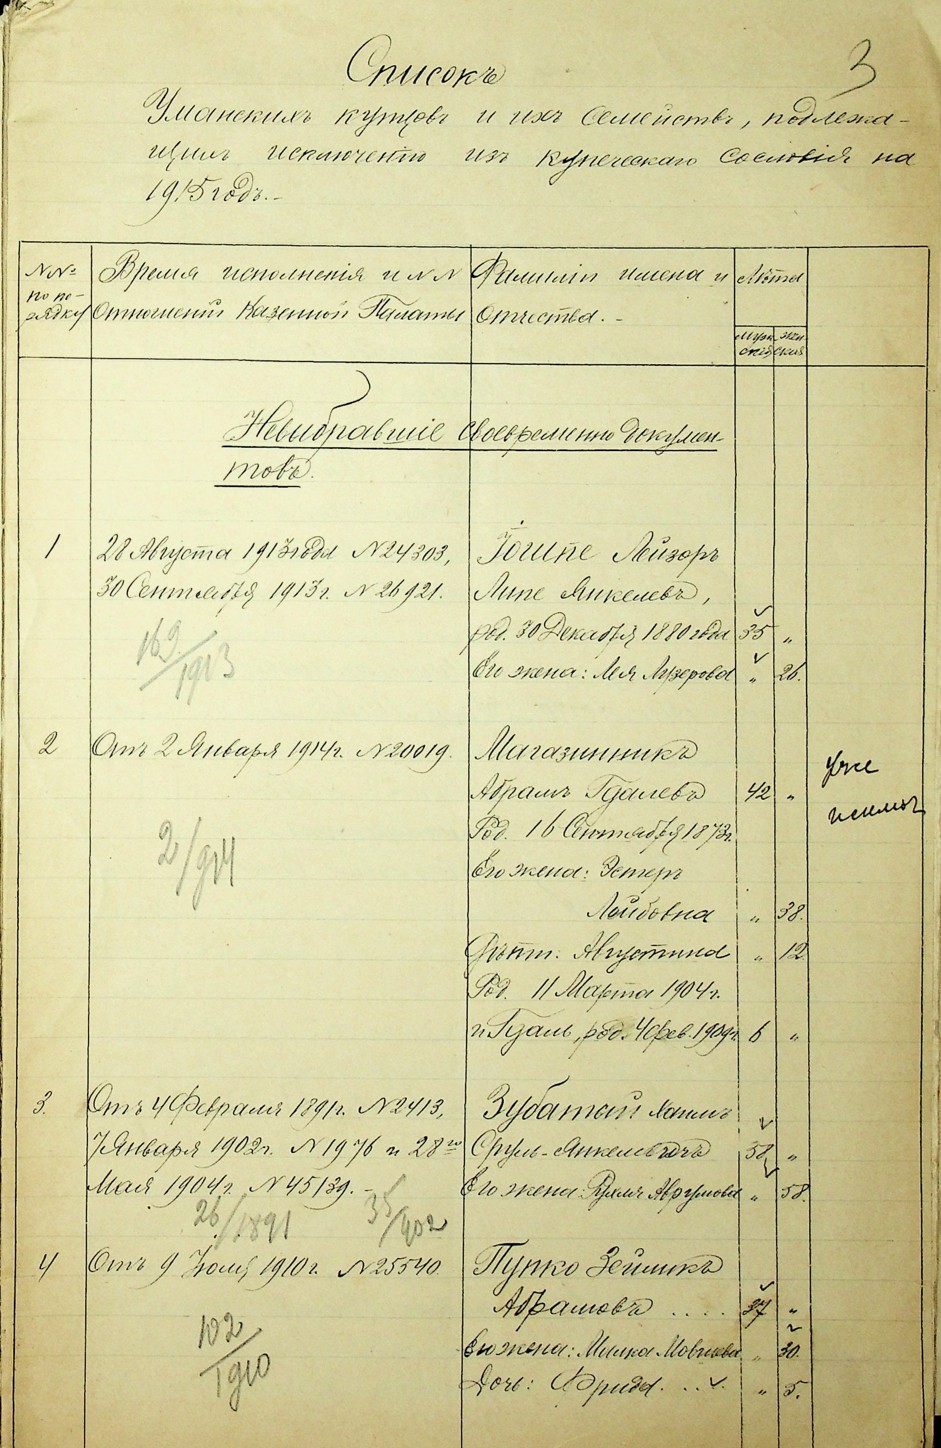 Списокъ
3
Уманскихъ купцовъ и ихъ семействъ, подлежа-
щихъ исключенію изъ купеческаго сословія на
1915 годъ.-
№№ по по-рядку
Время исполненія и №№ Отношеній Казенной Палаты
Фамиліи имена и Отчества.-
Лѣта
муж-ская
жен-ская
Невыбравшіе своевременно докумен-
товъ.
1
28 Августа 1913 года №24303,
30 Сентября 1913 г. №26921.
169/1913
Лейзоръ
Липе Янкелевъ,
род. 30 Декабря 1880 года 35 "
Его жена: Лея Лузерова " 26.
2
Отъ 2 Января 1914 г. №20019.
2/914
Магазинникъ
Абрамъ Гдалевъ 42 "
Род. 16 Сентября 1873 г.
Его жена: Эстеръ
Лейбовна " 38.
Дѣти: Августина " 12
Род. 11 Марта 1904 г.
и Гдаль, род. 4 фев. 1909 г. 6 "
уже
3.
Отъ 4 Февраля 1891 г. №2413,
7 Января 1902 г. №1976 и 28го
Мая 1904 г. №45139.-
26/1891
35/902
Зубатый Хаимъ
Сруль-Янкелевичъ 58 "
Его жена: Рухля Аврумова " 58.
4
Отъ 9 Іюля 1910 г. №25540
102/1910
Пупко Зейликъ
Абрамовъ .... 37 "
Его жена: Милка Мовшева " 30.
Дочь: Фрида. .. " 5.